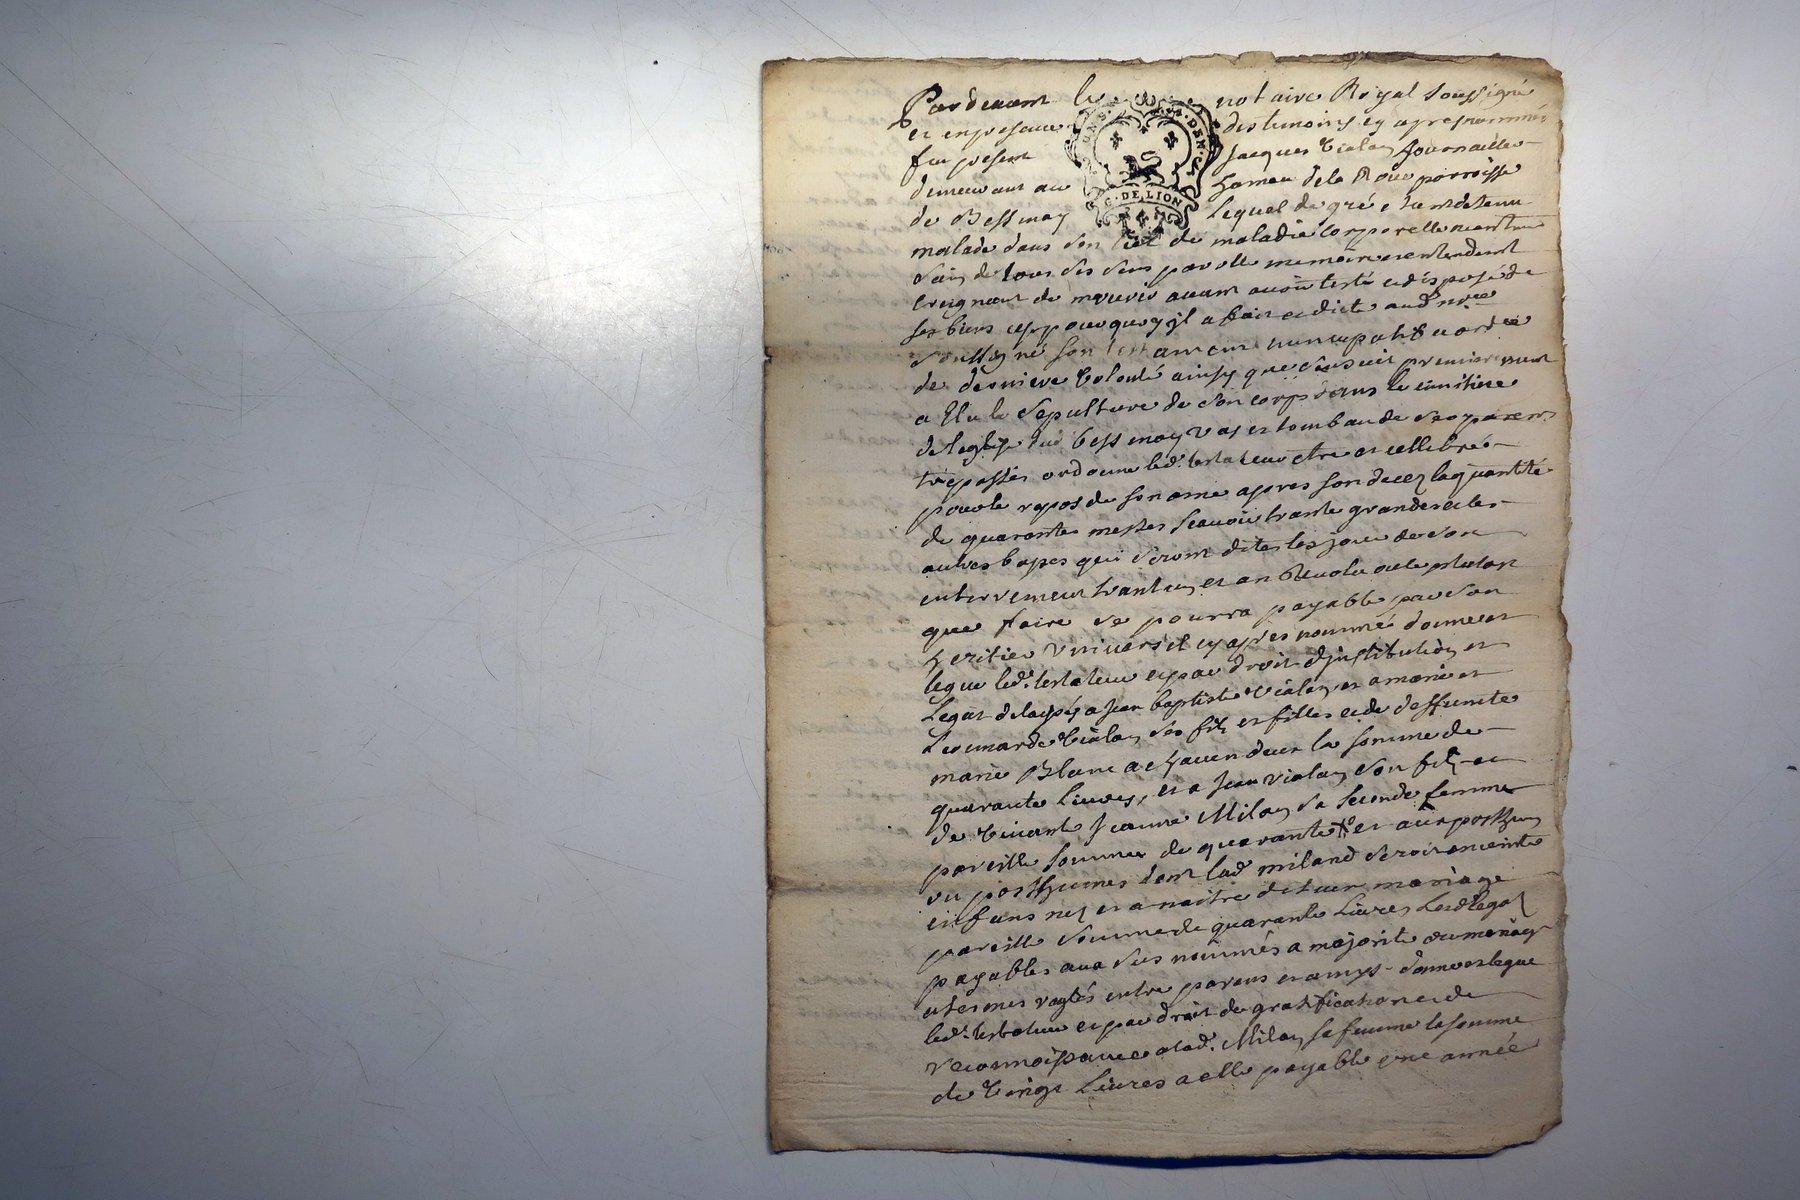 Pardevant le notaire Royal soussigné
et en presence des temoins cy apres nommés
fut present Jacques Vialon Journaillier
demeurant au hameau de la Roüe parroisse
de Bessenay Lequel de gré etant detenu
malade dans son lict de maladie corporelle neantm
sain de tous ses sens parolle memoire et entendement
creignant de mourir avant avoir testé et disposé de
ses biens cest pourquoy jl a fait et dicté aud. nore
soussigné son testament nuncupatif et ordce
de derniere volonté ainsy que sensuit premierement
a Elu la sepulture de son corps dans le cimitiere
de leglize dud Bessenay vas et tombau de ses parens
trepassés ordonne led. testateur etre et cellebré
pour le repos de son ame apres son decez la quantité
de quarantes messes scavoir trante grandes et les
autres basses qui seront dites les jour de son
enterrement trantain et an Revolu ou le plutot
que faire se pourra payable par son
heritier universel cy apres nommé donne et
legue led. testateur et par droit djnstitution et
Legat delaissé a Jean baptiste Vialon et a marie et
Leonnarde Vialon ses fils et filles et de deffuncte
marie Blanc a chacun deux la somme de
quarante Livres, et a Jean Vialon son fils et
de vivante Jeanne Milan sa seconde femme
pareille somme de quarante # et aux posthum
ou posthumes dont lad miland seroit enceinte
enfans nez et a naitre de leur mariage
pareille somme de quarante Livres Lesd legat
payables aux sus nommés a majorité ou mariage
a termes reglés entre parens et amys - donne et legue
led. testateur et par droit de gratification et de
reconnoissance a lad. Milan sa femme la somme
de vingt Livres a elle payable une année
G. DE LION